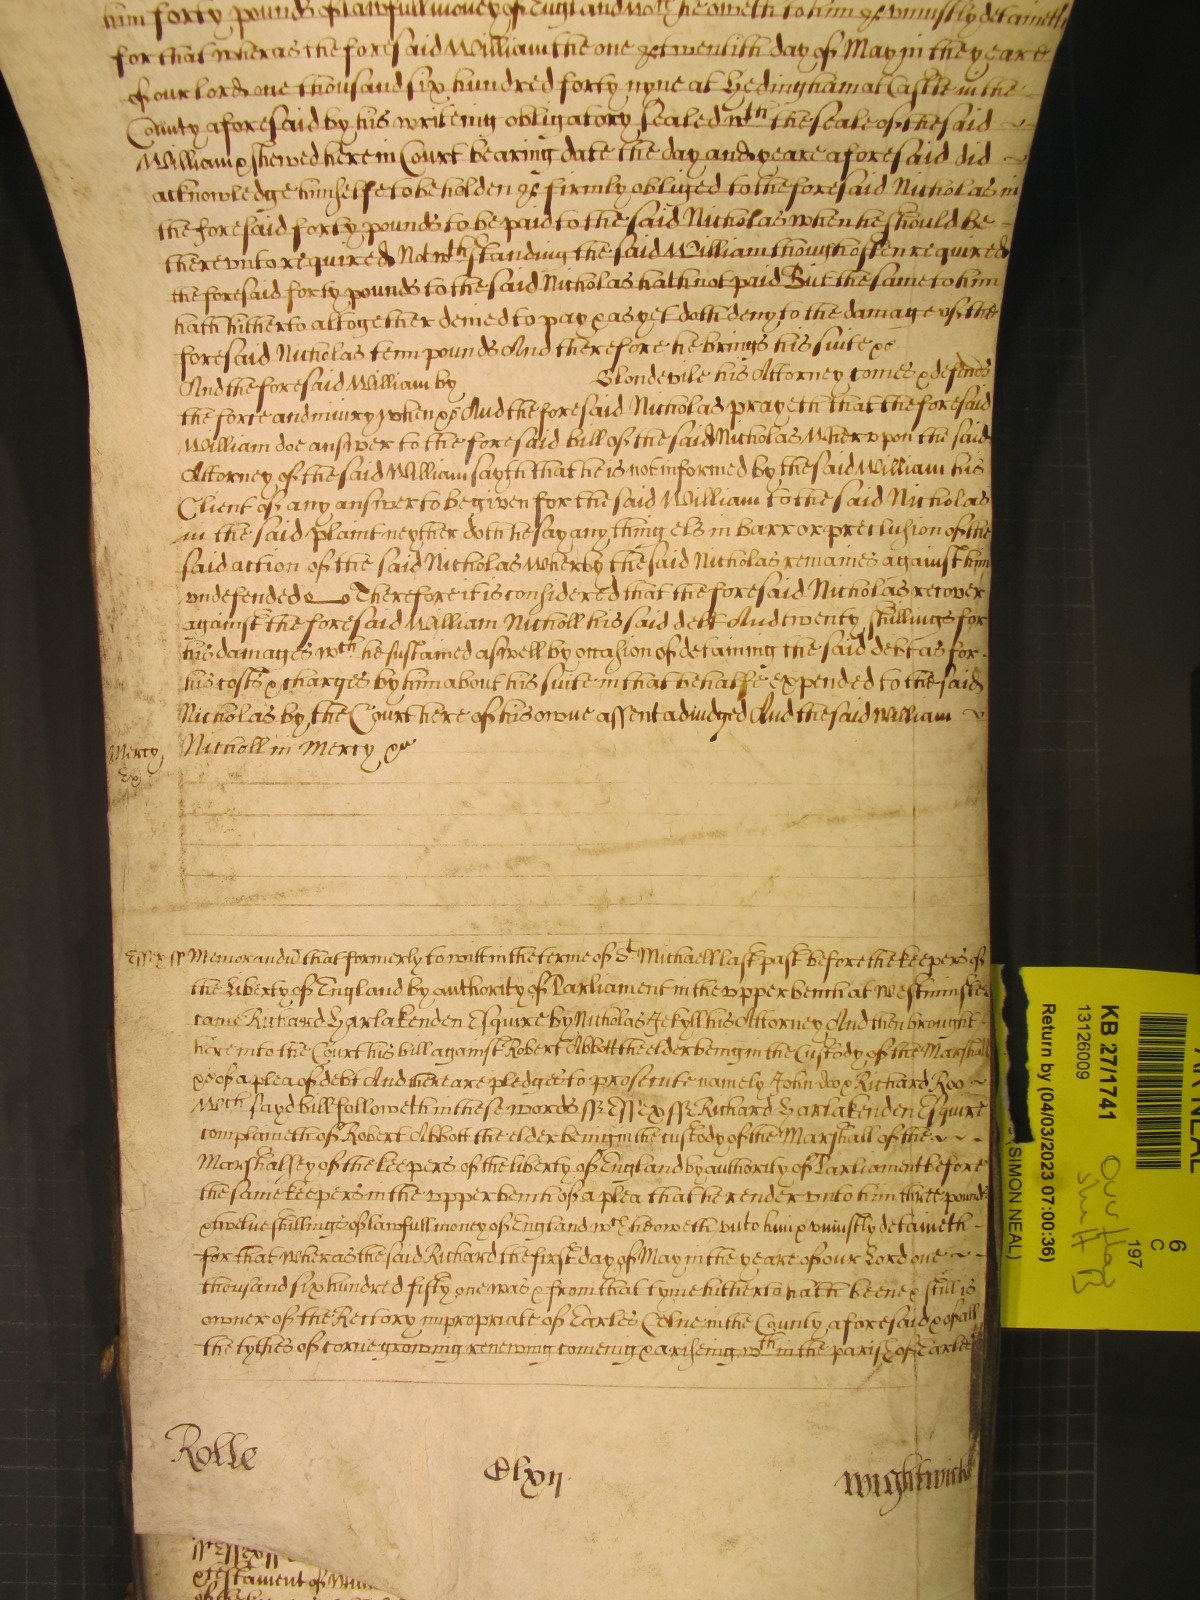 him forty pounds of lawfull money of England wch he oweth to him & uniustly detaineth
for that wheras the foresaid William the one & twentith day of May in the yeare
of our lord one thousand six hundred forty nyne at Hedingham at Castle in the
County aforesaid by his writeing obligatory sealed wth the seale of the said
William & shewed here in Court bearing date the day and yeare aforesaid did
acknowledge himselfe to be holden & firmly obliged to the foresaid Nicholas in
the foresaid forty pounds to be paid to the said Nicholas when he should be
therevnto required Notwthstanding the said William though often required
the foresaid forty pounds to the said Nicholas hath not paid But the same to him
hath hitherto altogether denied to pay & as yet doth deny to the damage of the
foresaid Nicholas tenn pounds And therefore he brings his suite &c
And the foresaid William by Blondevile his Attorney comes & defends
the force and iniury when &c And the foresaid Nicholas prayeth that the foresaid
William doe answer to the foresaid bill of the said Nicholas Whervpon the said
Attorney of the said William sayth that he is not informed by the said William his
Client of any answer to be given for the said William to the said Nicholas
in the said plaint neyther doth he say any thing els in barr or preclusion of the
said action of the said Nicholas Wherby the said Nicholas remaines against him
vndefended Therefore it is considered that the foresaid Nicholas recover
against the foresaid William Nicholl his said debt And twenty shillings for
his damages wch he sustained aswell by occasion of detaining the said debt as for
his costs & charges by him about his suite in that behalfe expended to the said
Nicholas by the Court here of his owne assent adiudged And the said William
Mercy Nicholl in Mercy &c
Essex ss Memorand that formerly to witt in the terme of St Michaell last past before the keepers of
the Liberty of England by authority of Parliament in the vpper bench at Westminster
came Richard Harlakenden Esquire by Nicholas Jekyll his Attorney And then brought
here into the Court his bill against Robert Abbott the elder being in the Custody of the Marshall
&c of a plea of debt And there are pledges to prosecute namely John Doo & Richard Roo
Wch sayd bill followeth in these words ss Essex ss Richard Harlakenden Esquire
complaineth of Robert Abbott the elder being in the custody of the Marshall of the
Marshalsey of the keepers of the liberty of England by authority of Parliament before
the same keepers in the vpper bench of a plea that he render vnto him three pounds
& twelve shillings of lawfull money of England wch he oweth vnto him & vniustly detaineth
for that Wheras the said Richard the first day of May in the yeare of our Lord one
thousand six hundred fifty one was & from that tyme hitherto hath beene & still is
owner of the Rectory impropriate of Earles Colne in the County aforesaid & of all
the tythes of corne growing renewing comeing & ariseing wthin the parish of Earles
Rolle Clxij Wightwick
testament of
KB 27/1741
13126009
Return by (04/03/2023 07:00:36)
(SIMON NEAL)
6
C
197